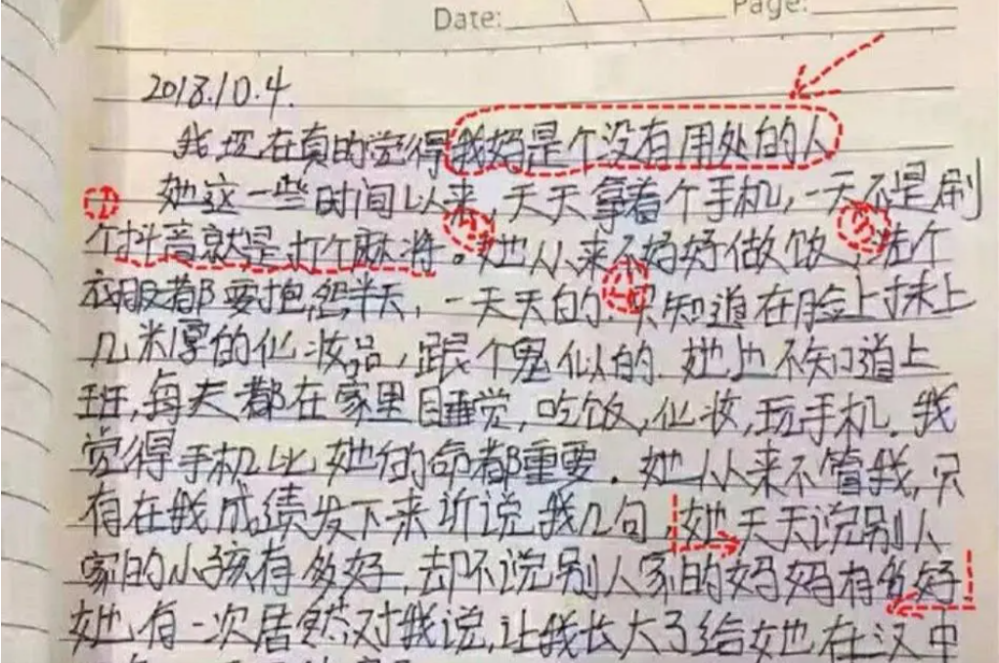 Date: Page:
2018.10.4.
我现在真的觉得我妈是个没有用处的人
她这一些时间以来,天天拿着个手机,一天不是刷
个抖音就是打个麻将。她从来不好好做饭,洗个
衣服都要抱怨半天,一天天的,只知道在脸上抹上
几米厚的化妆品,跟个鬼似的.她也不知道上
班,每天都在家里睡觉,吃饭,化妆,玩手机.我
觉得手机比她的命都重要.她从来不管我,只
有在我成绩发下来听说我几句,她天天说别人
家的小孩有多好,却不说别人家的妈妈有多好
她有一次居然对我说,让我长大了给她在汉中